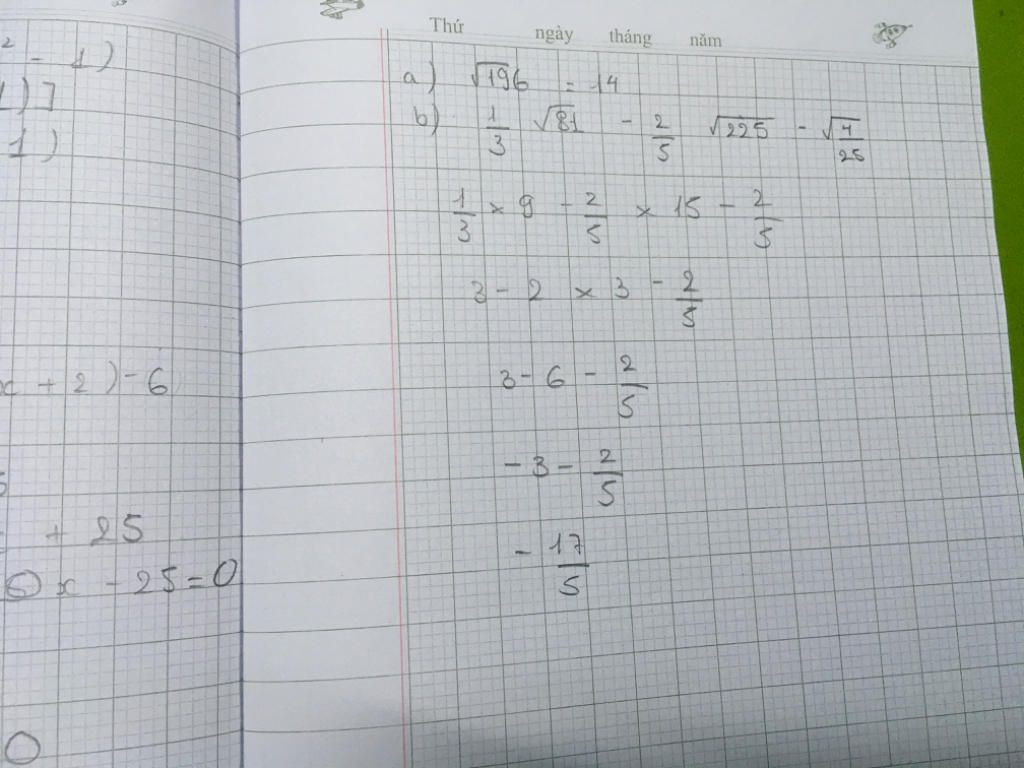 ² - 1)
1)]
1)
x + 2) - 6
+ 25
x - 25 = 0
Thứ ngày tháng năm
a) √196 = 14
b) 1/3 √81 - 2/5 √225 - √4/25
1/3 × 9 - 2/5 × 15 - 2/5
3 - 2 × 3 - 2/5
3 - 6 - 2/5
- 3 - 2/5
- 17/5